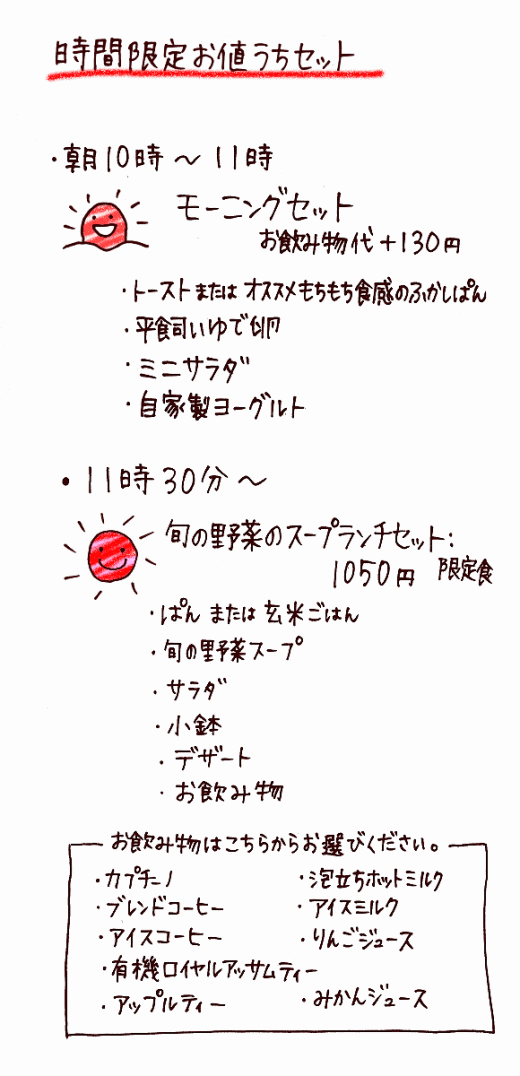 時間限定お値うちセット
・朝10時〜11時
モーニングセット
お飲み物代+130円
・トースト または オススメもちもち食感のふかしぱん
・平飼いゆで卵
・ミニサラダ
・自家製ヨーグルト
・11時30分〜
旬の野菜のスープランチセット:
1050円 限定食
・ぱん または 玄米ごはん
・旬の野菜スープ
・サラダ
・小鉢
・デザート
・お飲み物
お飲み物はこちらからお選びください。
・カプチーノ ・泡立ちホットミルク
・ブレンドコーヒー ・アイスミルク
・アイスコーヒー ・りんごジュース
・有機ロイヤルアッサムティー
・アップルティー ・みかんジュース